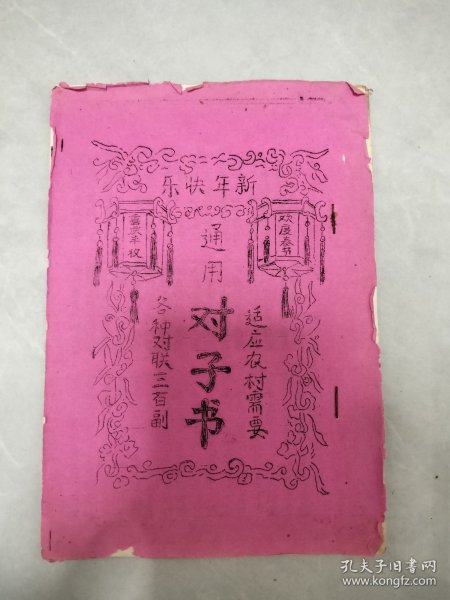 新年快乐
欢度春节
通用
对子书
适应农村需要
各种对联三百副
孔夫子旧书网
www.kongfz.com